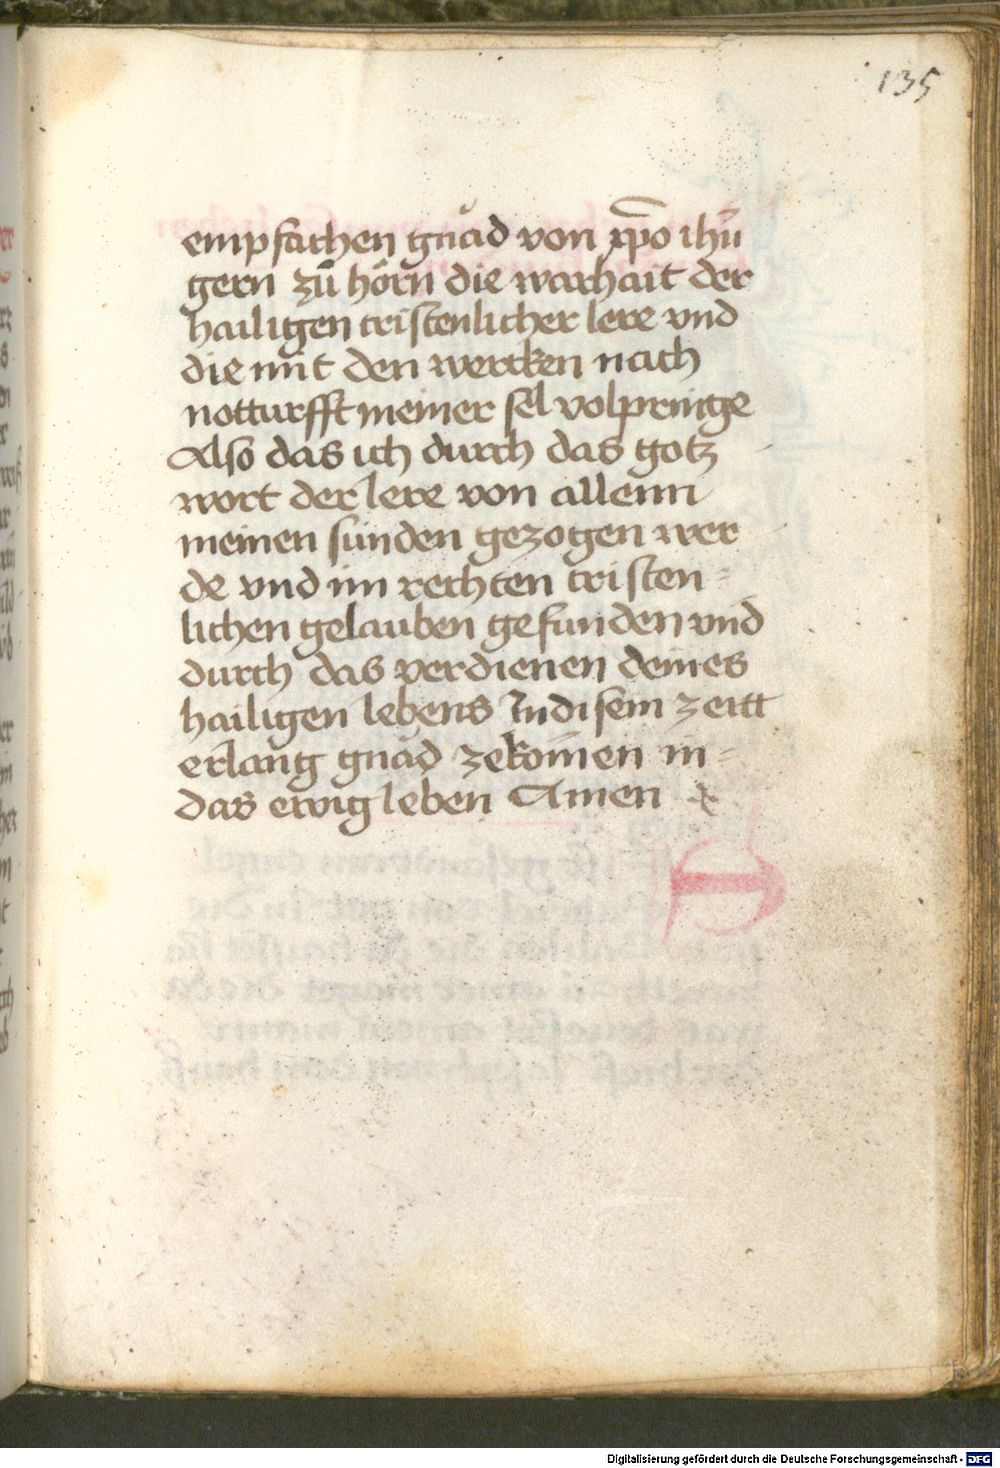 135
empfachen gnad von xp̄o ihū
gern zů hörn die warhait der
hailigen cristenlicher lere vnd
die mit den wercken nach
notturfft meiner sel volpringe
Also das ich durch das gotz
wort der lere von allenn
meinen sünden gezogen wer
de vnd im rechten cristen-
lichen gelauben gefunden vnd
durch das verdienen deines
hailigen lebens In disem zeitt
erlang gnad zekomen in-
das ewig leben Amen
Digitalisierung gefördert durch die Deutsche Forschungsgemeinschaft - DFG